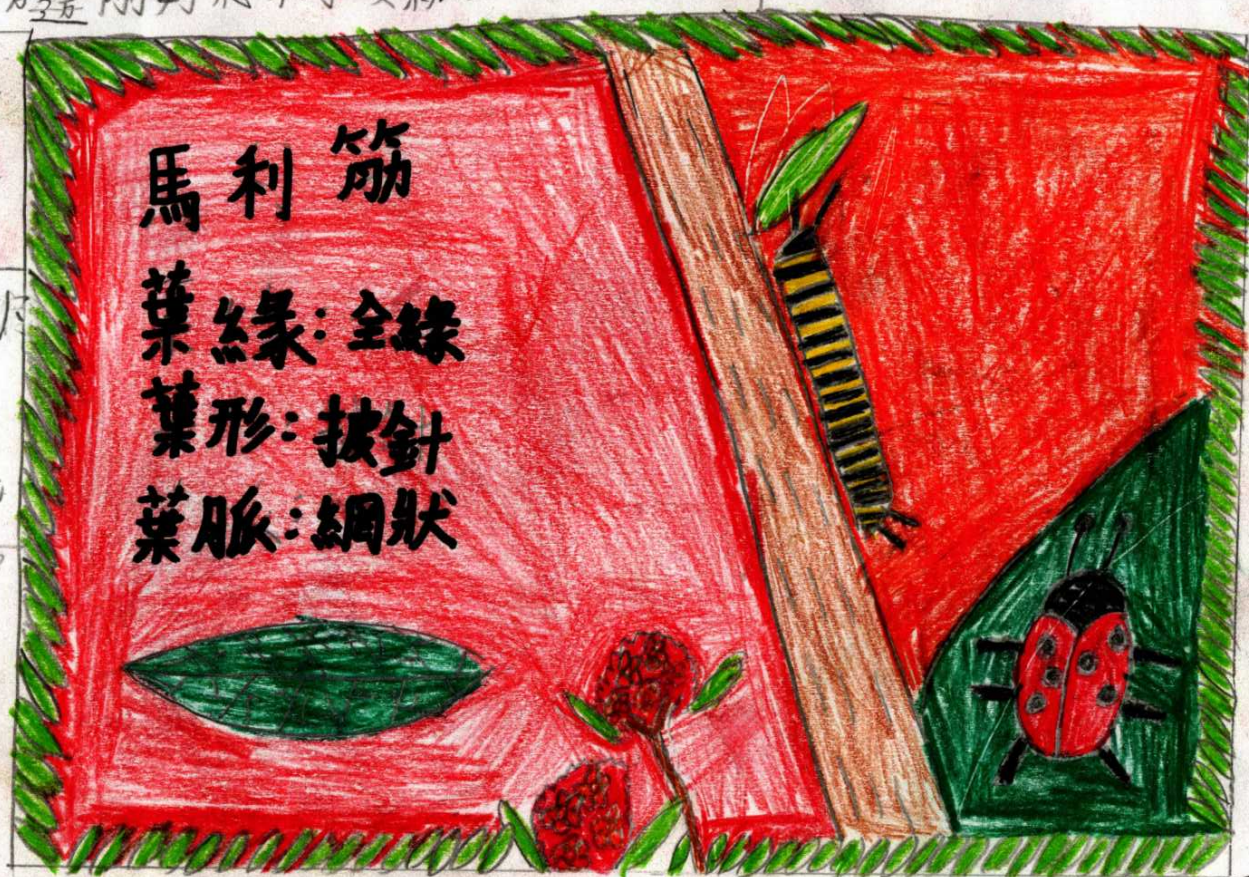 馬利筋
葉緣:全緣
葉形:披針
葉脈:網狀